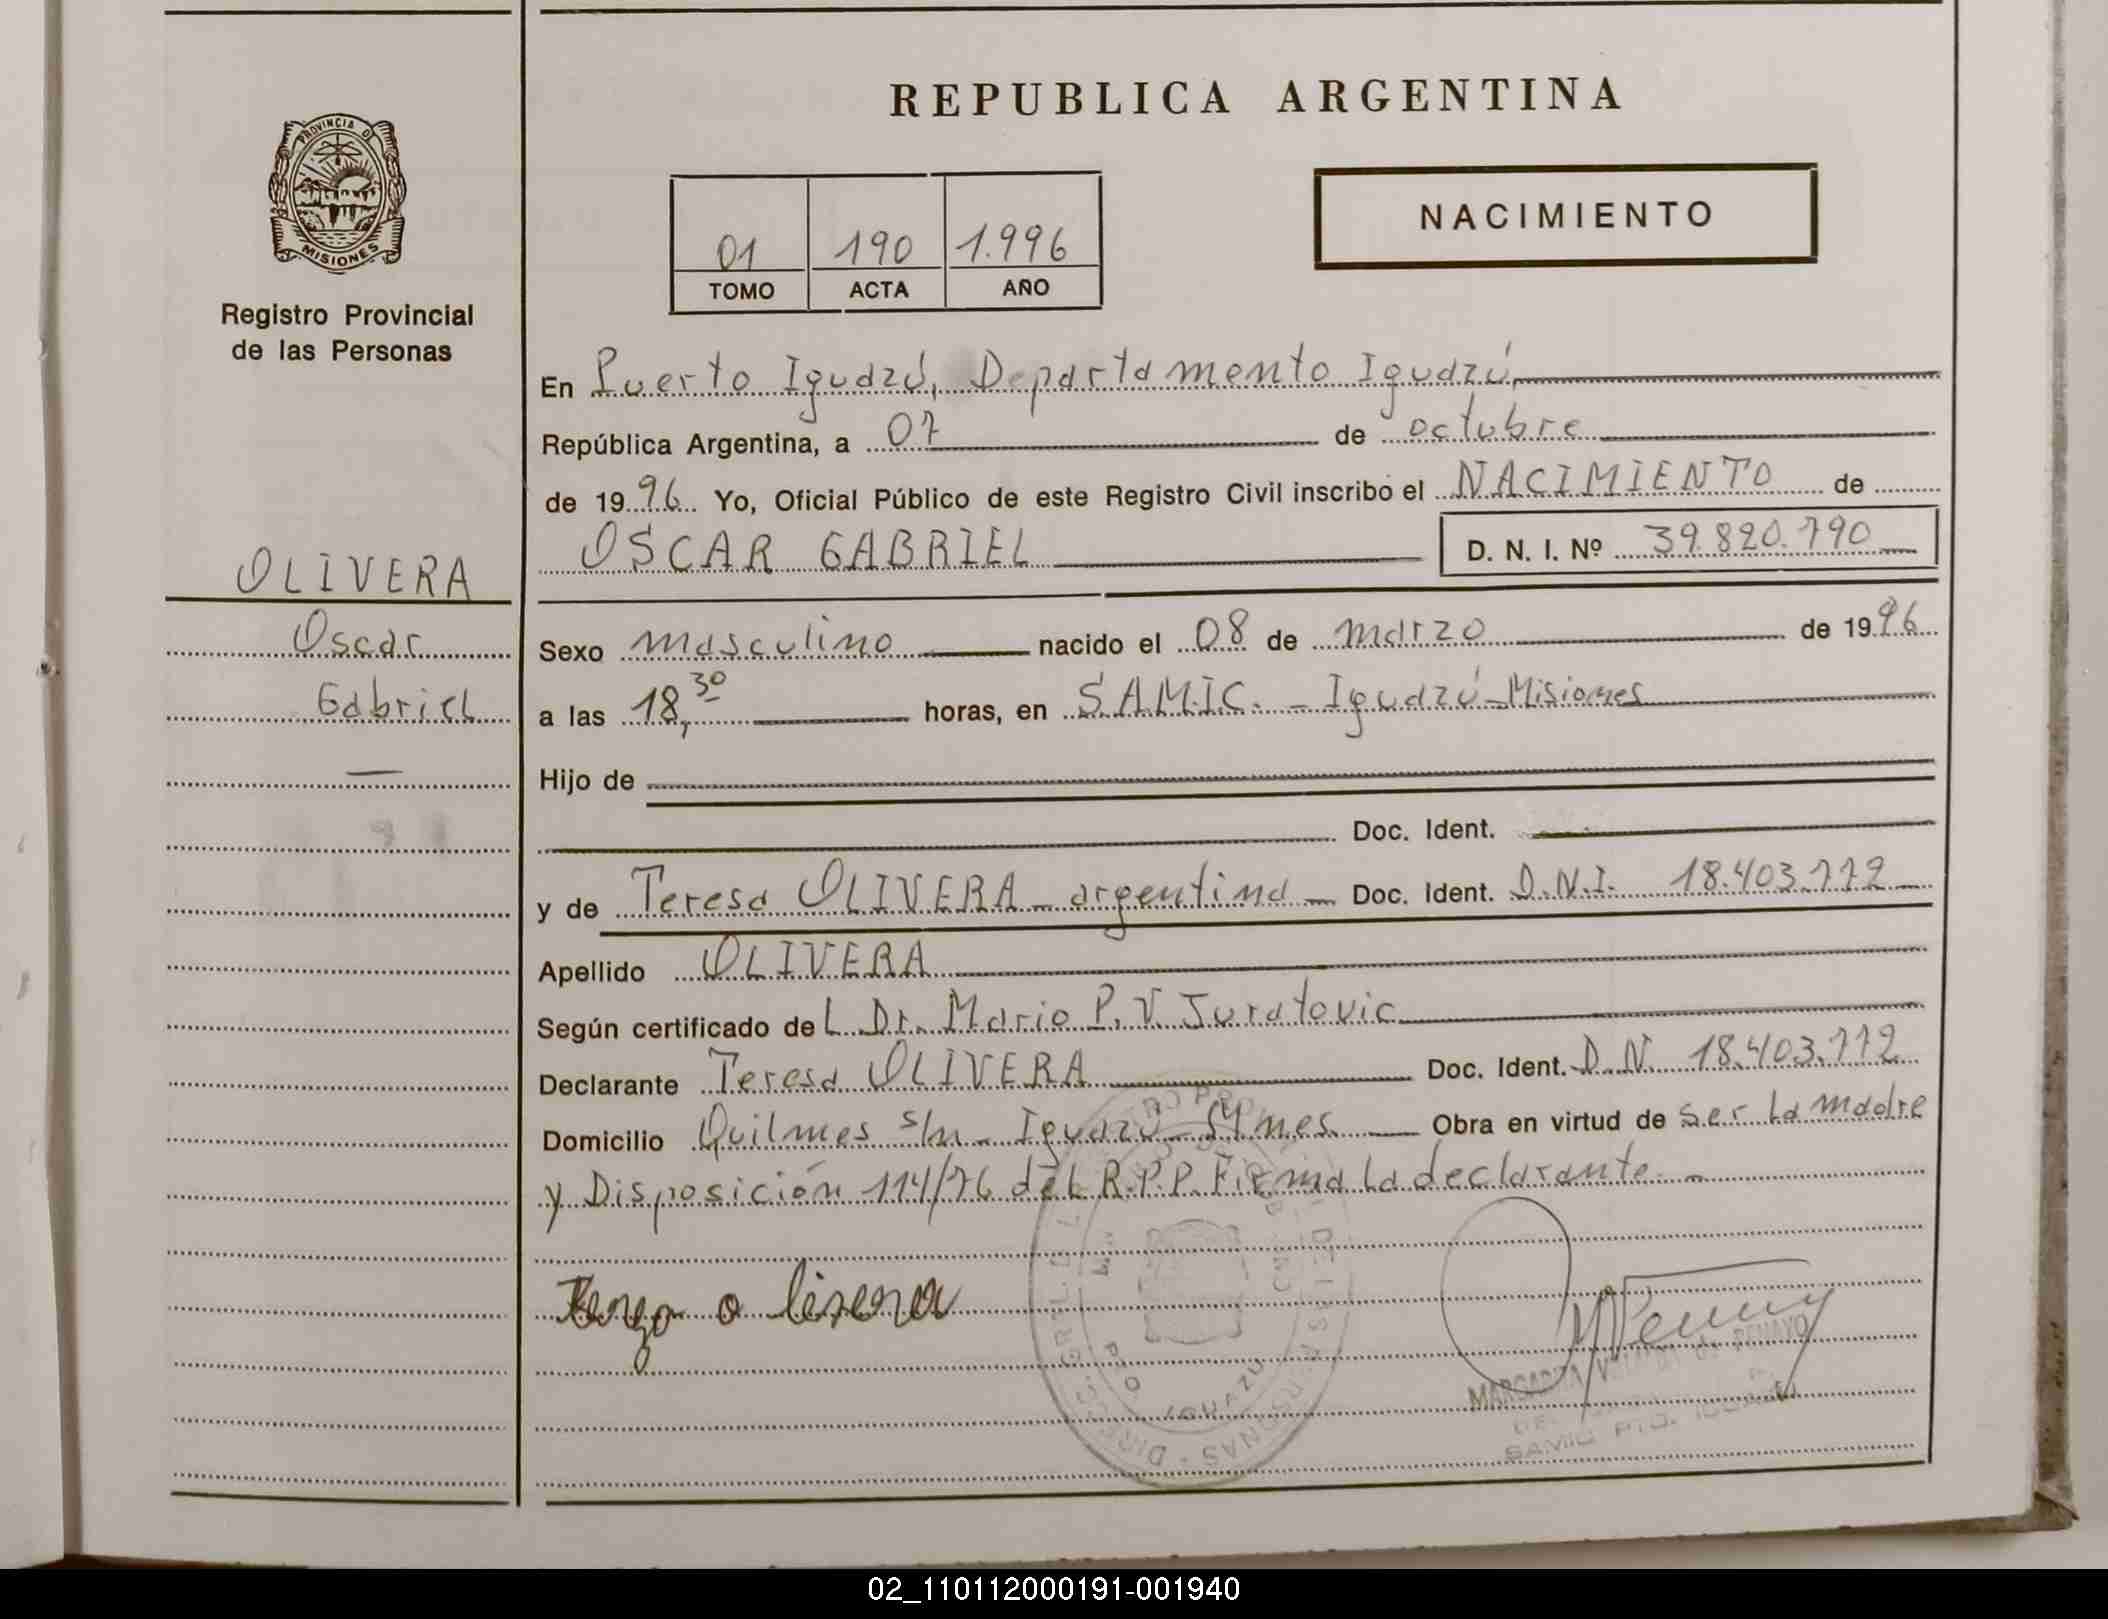 REPUBLICA ARGENTINA
PROVINCIA DE
MISIONES
Registro Provincial
de las Personas
01 190 1.996
TOMO ACTA AÑO
NACIMIENTO
En Puerto Iguazú, Departamento Iguazú
República Argentina, a 07 de octubre
de 1996 Yo, Oficial Público de este Registro Civil inscribo el NACIMIENTO de
OSCAR GABRIEL D. N. I. Nº 39.820.790
OLIVERA
Oscar
Gabriel
Sexo masculino nacido el 08 de marzo de 1996
a las 18,30 horas, en S.A.M.I.C. - Iguazú - Misiones
Hijo de
Doc. Ident.
y de Teresa OLIVERA - argentina - Doc. Ident. D.N.I. 18.403.772
Apellido OLIVERA
Según certificado del Dr. Mario P. V. Juratovic
Declarante Teresa OLIVERA Doc. Ident. D.N. 18.403.772
Domicilio Quilmes s/n - Iguazú - Mnes. Obra en virtud de ser la madre
y Disposición 114/76 del R.P.P. Firma la declarante. -
MARGARITA DE PENAYO
SAMIC PTO. IGUAZU
02_110112000191-001940